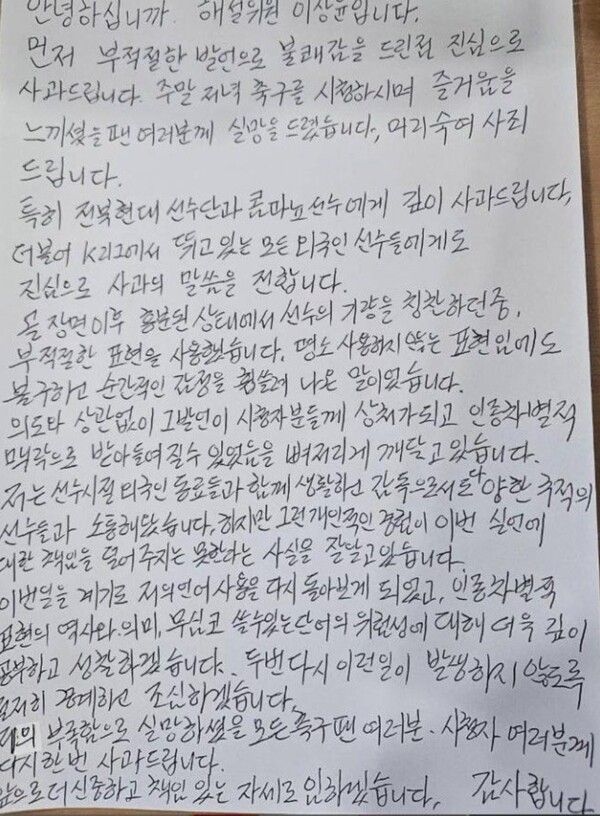 안녕하십니까. 해설위원 이상윤입니다.
먼저 부적절한 발언으로 불쾌감을 드린점 진심으로
사과드립니다. 주말 저녁 축구를 시청하시며 즐거움을
느끼셨을 팬 여러분께 실망을 드렸습니다, 머리숙여 사죄
드립니다.
특히 전북현대 선수단과 콤파뇨선수에게 깊이 사과드립니다,
더불어 K리그에서 뛰고 있는 모든 외국인 선수들에게도
진심으로 사과의 말씀을 전합니다.
골 장면이후 흥분된 상태에서 선수의 기량을 칭찬하던중,
부적절한 표현을 사용했습니다. 평소 사용하지 않는 표현임에도
불구하고 순간적인 감정을 휩쓸려 나온 말이었습니다.
의도와 상관없이 그발언이 시청자분들께 상처가되고 인종차별적
맥락으로 받아들여질수 있었음을 뼈저리게 깨닫고 있습니다.
저는 선수시절 외국인 동료들과 함께 생활하고 감독으로서도 다양한 국적의
선수들과 소통해왔습니다, 하지만 그런개인적인 경험이 이번 실언에
대한 책임을 덜어주지는 못한다는 사실을 잘알고있습니다.
이번일을 계기로 저의언어사용을 다시 돌아보게 되었고, 인종차별적
표현의 역사와 의미, 무심코 쓸수있는단어의 위험성에 대해 더욱 깊이
공부하고 성찰하겠습니다. 두번다시 이런일이 발생하지 않도록
철저히 경계하고 조심하겠습니다.
저의 부족함으로 실망하셨을 모든축구팬 여러분·시청자 여러분께
다시한번 사과드립니다.
앞으로 더신중하고 책임 있는 자세로 임하겠습니다, 감사합니다